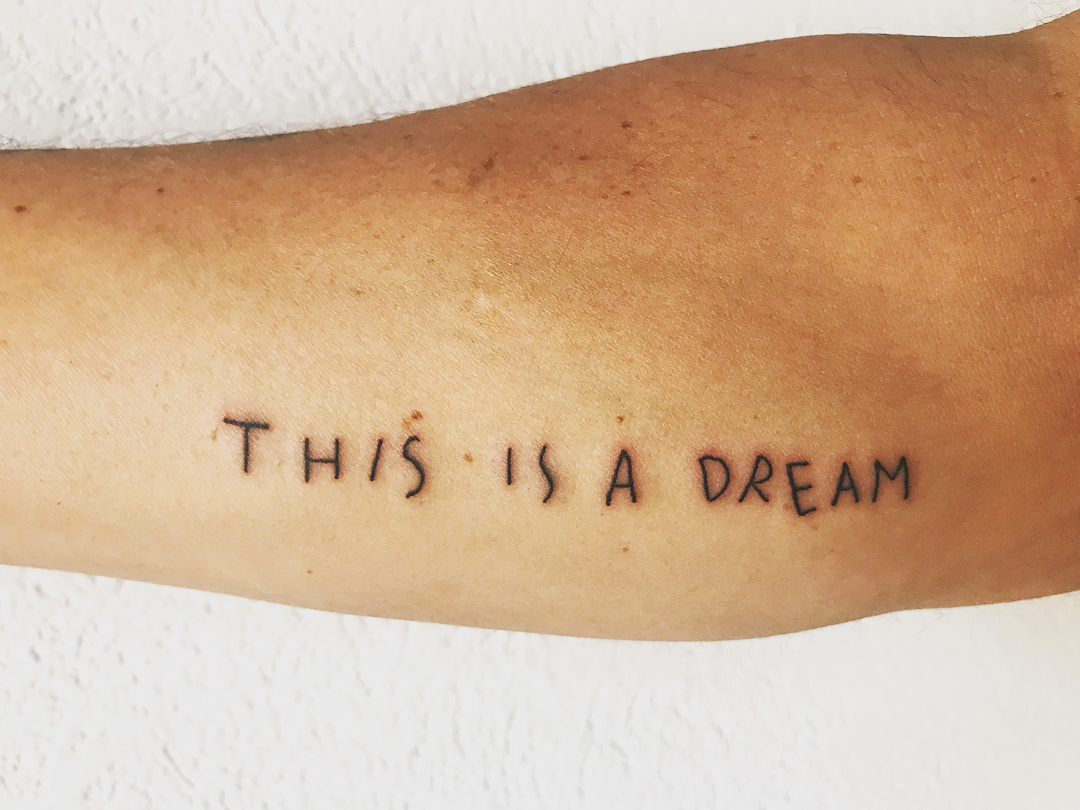 THIS IS A DREAM